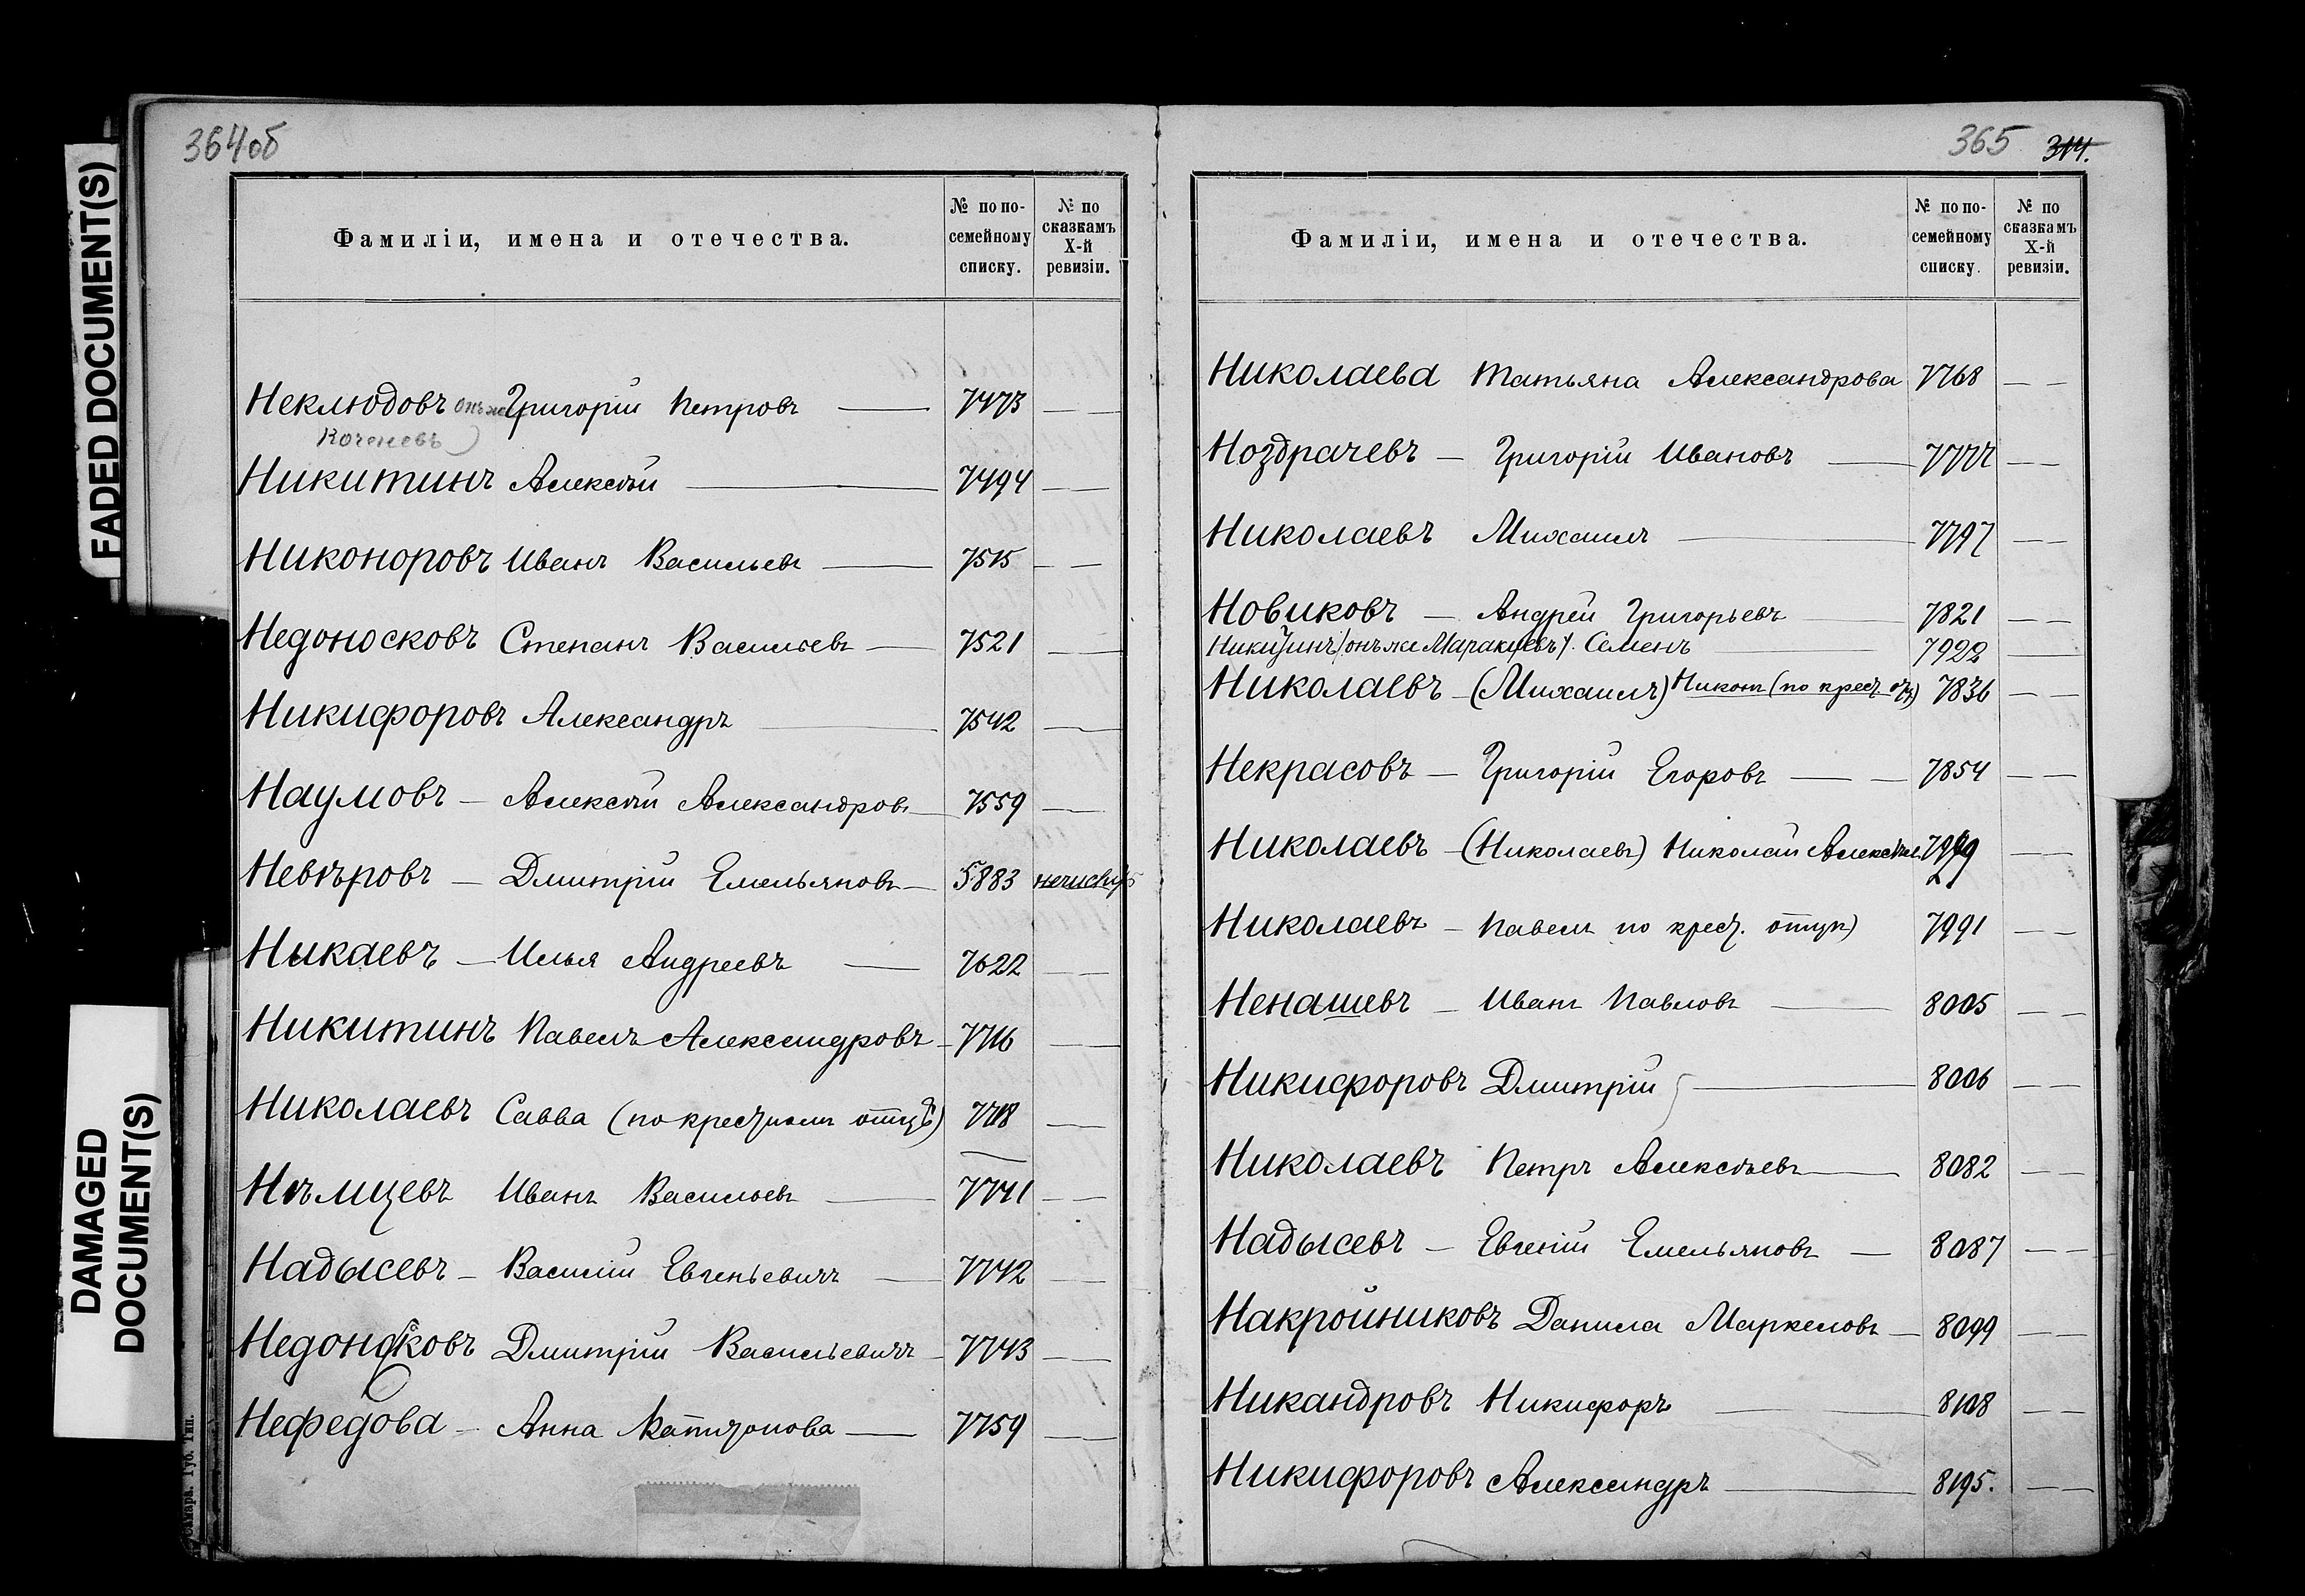 FADED DOCUMENT(S)
DAMAGED
DOCUMENT(S)
364об
Фамиліи, имена и отечества.
№ по по-
семейному
списку.
№ по
сказкамъ
X-й
ревизіи.
Неклюдовъ онъ же Григорій Петровъ — 7473 — —
Коченевъ)
Никитинъ Алексѣй — 7494 — —
Никоноровъ Иванъ Васильевъ — 7515 — —
Недоносковъ Степанъ Васильевъ — 7521 — —
Никифоровъ Александръ — 7542 —
Наумовъ — Алексѣй Александровъ — 7559 —
Невѣровъ — Дмитрій Емельяновъ — 5883
Никаевъ — Илья Андреевъ — 7622 — —
Никитинъ Павелъ Александровъ — 7716 — —
Николаевъ Савва (по крестному отцу) 7718 —
Нѣмцевъ Иванъ Васильевъ — 7741 — —
Надысевъ — Василій Евгеньевичъ — 7742 — —
Недоносковъ Дмитрій Васильевичъ — 7743 — —
Нефедова — Анна — 7759 — —
Самара. Губ. Тип.
365 314.
Фамиліи, имена и отечества.
№ по по-
семейному
списку.
№ по
сказкамъ
X-й
ревизіи.
Николаева Татьяна Александрова 7768 — —
Ноздрачевъ — Григорій Ивановъ — 7777 — —
Николаевъ Михаилъ — 7797 — —
Новиковъ — Андрей Григорьевъ — 7821 — —
Никитинъ (онъ же Маракаевъ). Семенъ — 7922 —
Николаевъ — (Михаилъ) Никон (по крест. от.) 7836 — —
Некрасовъ — Григорій Егоровъ — — 7854 — —
Николаевъ — (Николаевъ) Николай — —
Николаевъ — Павелъ по крест. отцу) 7991 — —
Ненашевъ — Иванъ Павловъ — 8005 — —
Никифоровъ Дмитрій — 8006 — —
Николаевъ Петръ Алексѣевъ — 8082 — —
Надысевъ — Евгеній Емельяновъ — 8087 — —
Накройниковъ Данила Маркеловъ — 8099 — —
Никандровъ Никифоръ — 8108 — —
Никифоровъ Александръ — 8195. — —